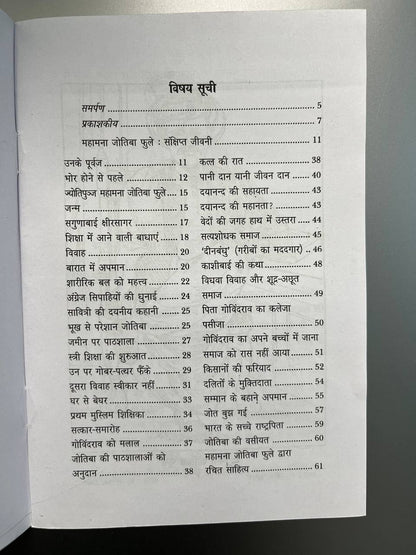 विषय सूची
समर्पण ........................................................ 5
प्रकाशकीय ................................................... 7
महामना जोतिबा फुले : संक्षिप्त जीवनी ........................ 11
उनके पूर्वज ......................... 11
भोर होने से पहले ................. 12
ज्योतिपुञ्ज महामना जोतिबा फुले .... 15
जन्म .................................. 15
सगुणाबाई क्षीरसागर ............. 17
शिक्षा में आने वाली बाधाएं ...... 18
विवाह ............................... 20
बारात में अपमान .................. 20
शारीरिक बल को महत्व .......... 22
अंग्रेज सिपाहियों की धुनाई ....... 24
सावित्री की दयनीय कहानी ...... 25
भूख से परेशान जोतिबा .......... 25
जमीन पर पाठशाला ............... 27
स्त्री शिक्षा की शुरुआत ........... 28
उन पर गोबर-पत्थर फैंके ......... 29
दूसरा विवाह स्वीकार नहीं ....... 31
घर से बेघर ......................... 31
प्रथम मुस्लिम शिक्षिका ............ 34
सत्कार-समारोह .................... 36
गोविंदराव को मलाल ............. 37
जोतिबा की पाठशालाओं को
अनुदान .............................. 38
कत्ल की रात ....................... 38
पानी दान यानी जीवन दान ...... 40
दयानन्द की सहायता .............. 43
दयानन्द की महानता? ............ 43
वेदों की जगह हाथ में उस्तरा .... 44
सत्यशोधक समाज ................. 45
'दीनबंधु' (गरीबों का मददगार) .. 46
काशीबाई की कथा ................ 48
विधवा विवाह और शूद्र-अछूत
समाज ................................ 49
पिता गोविंदराव का कलेजा
पसीजा ............................... 50
गोविंदराव का अपने बच्चों में जाना
समाज को रास नहीं आया ....... 51
किसानों की फरियाद .............. 52
दलितों के मुक्तिदाता .............. 54
सम्मान के बहाने अपमान ........ 55
जोत बुझ गई ....................... 57
भारत के सच्चे राष्ट्रपिता .......... 59
जोतिबा की वसीयत .............. 60
महामना जोतिबा फुले द्वारा
रचित साहित्य ...................... 61